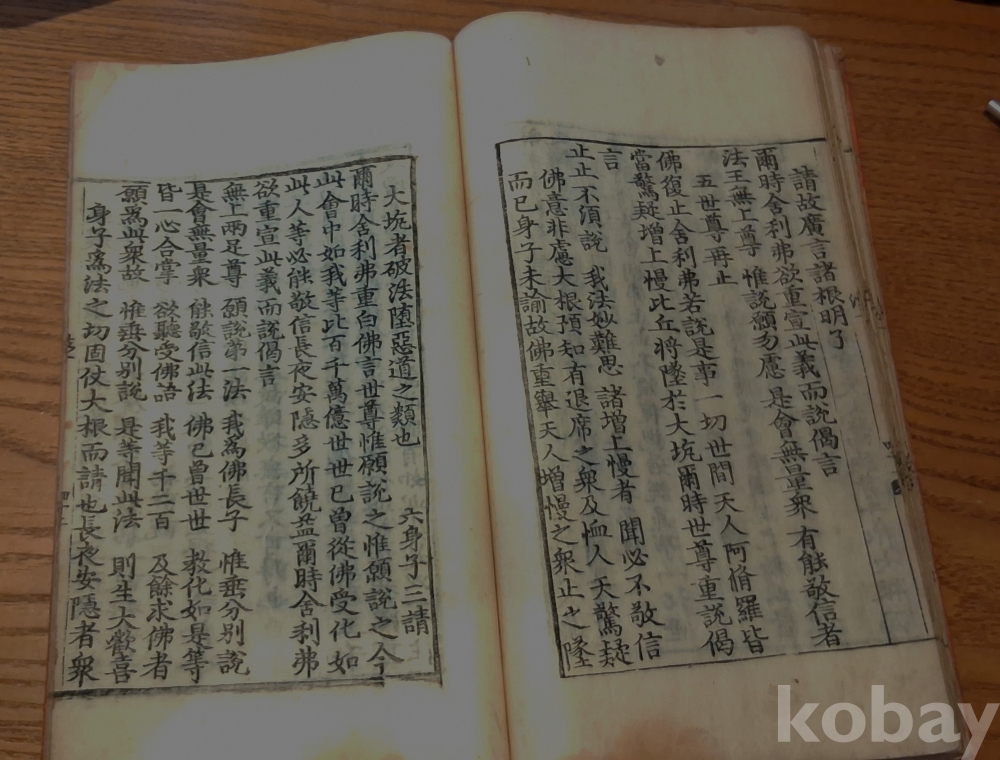 請故廣言諸根明了
爾時舍利弗欲重宣此義而說偈言
法王無上尊 惟說願勿慮 是會無量衆 有能敬信者
五世尊再止
佛復止舍利弗若說是事一切世間天人阿脩羅皆
當驚疑增上慢比丘將墜於大坑爾時世尊重說偈
言
止止不須說 我法妙難思 諸增上慢者 聞必不敬信
佛意非慮大根預知有退席之衆及恤人天驚疑
而已身子未諭故佛重擧天人增慢之衆止之墜
大坑者破法墮惡道之類也
六身子三請
爾時舍利弗重白佛言世尊惟願說之惟願說之今
此會中如我等比百千萬億世世已曾從佛受化如
此人等必能敬信長夜安隱多所饒益爾時舍利弗
欲重宣此義而說偈言
無上兩足尊 願說第一法 我爲佛長子 惟垂分別說
是會無量衆 能敬信此法 佛已曾世世 敎化如是等
皆一心合掌 欲聽受佛語 我等千二百 及餘求佛者
願爲此衆故 惟垂分別說 是等聞此法 則生大歡喜
身子爲法之切固仗大根而請也長夜安隱者衆
kobay